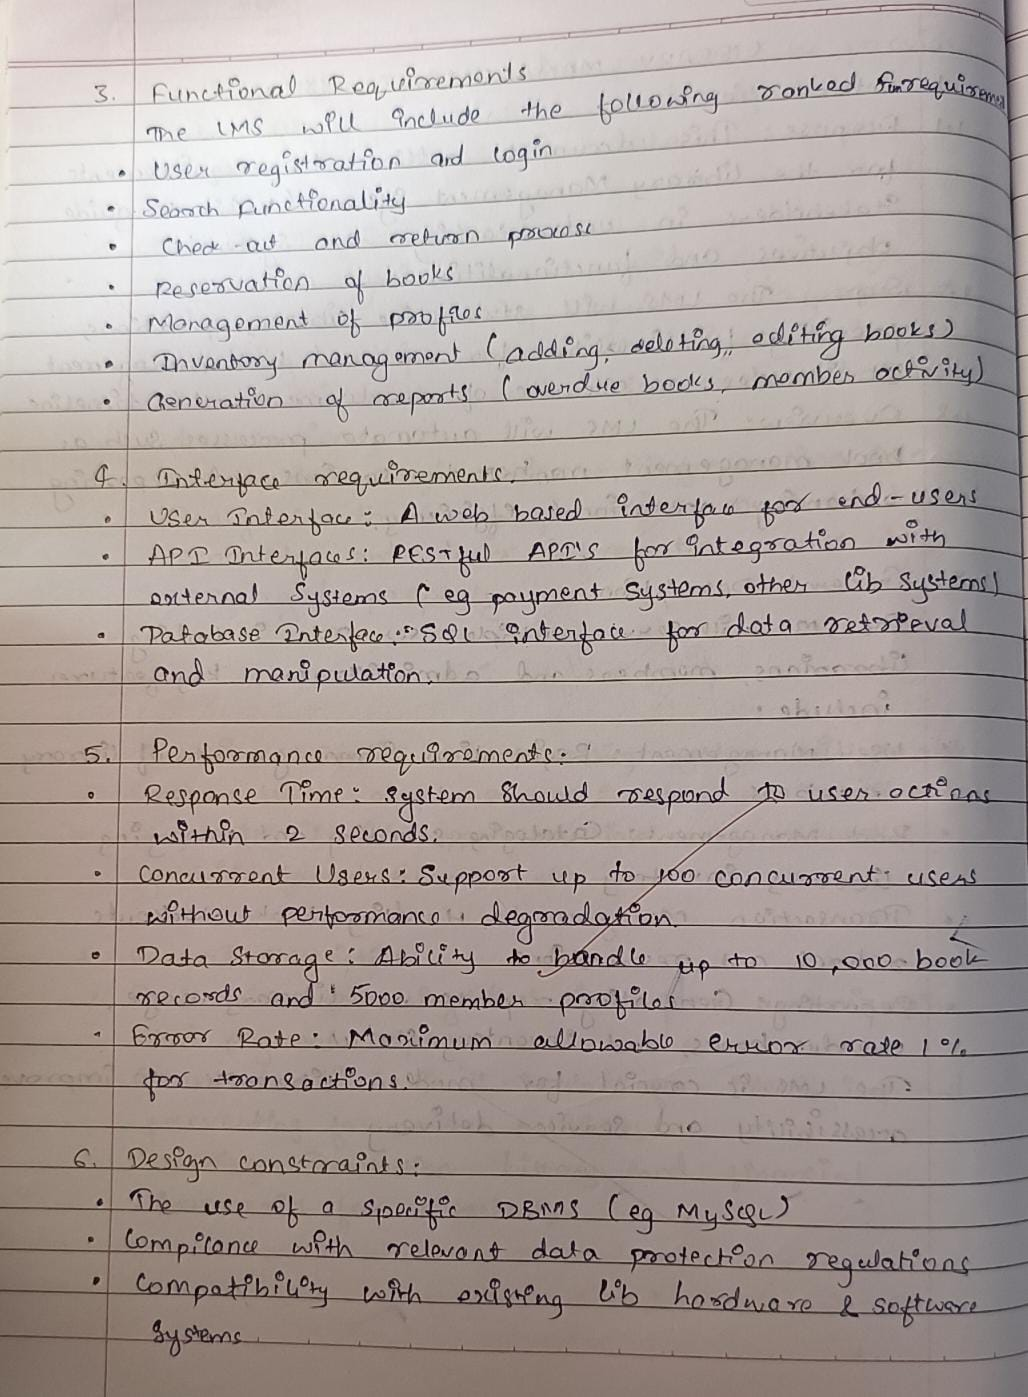 3. Functional Requirements
The LMS will include the following ranked requirements
• User registration and login
• Search functionality
• Check-out and return process
• Reservation of books
• Management of profiles
• Inventory management (adding, deleting, editing books)
• Generation of reports (overdue books, member activity)
4. Interface requirements:
• User Interface: A web based interface for end-users
• API Interfaces: RESTful API's for integration with
external systems (eg payment systems, other lib systems)
• Database Interface: SQL interface for data retrieval
and manipulation.
5. Performance requirements:
• Response Time: System should respond to user actions
within 2 seconds.
• Concurrent Users: Support up to 100 concurrent users
without performance degradation.
• Data Storage: Ability to handle up to 10,000 book
records and 5000 member profiles
• Error Rate: Maximum allowable error rate 1%
for transactions.
6. Design constraints:
• The use of a specific DBMS (eg MySQL)
• Compliance with relevant data protection regulations
• Compatibility with existing lib hardware & software
systems